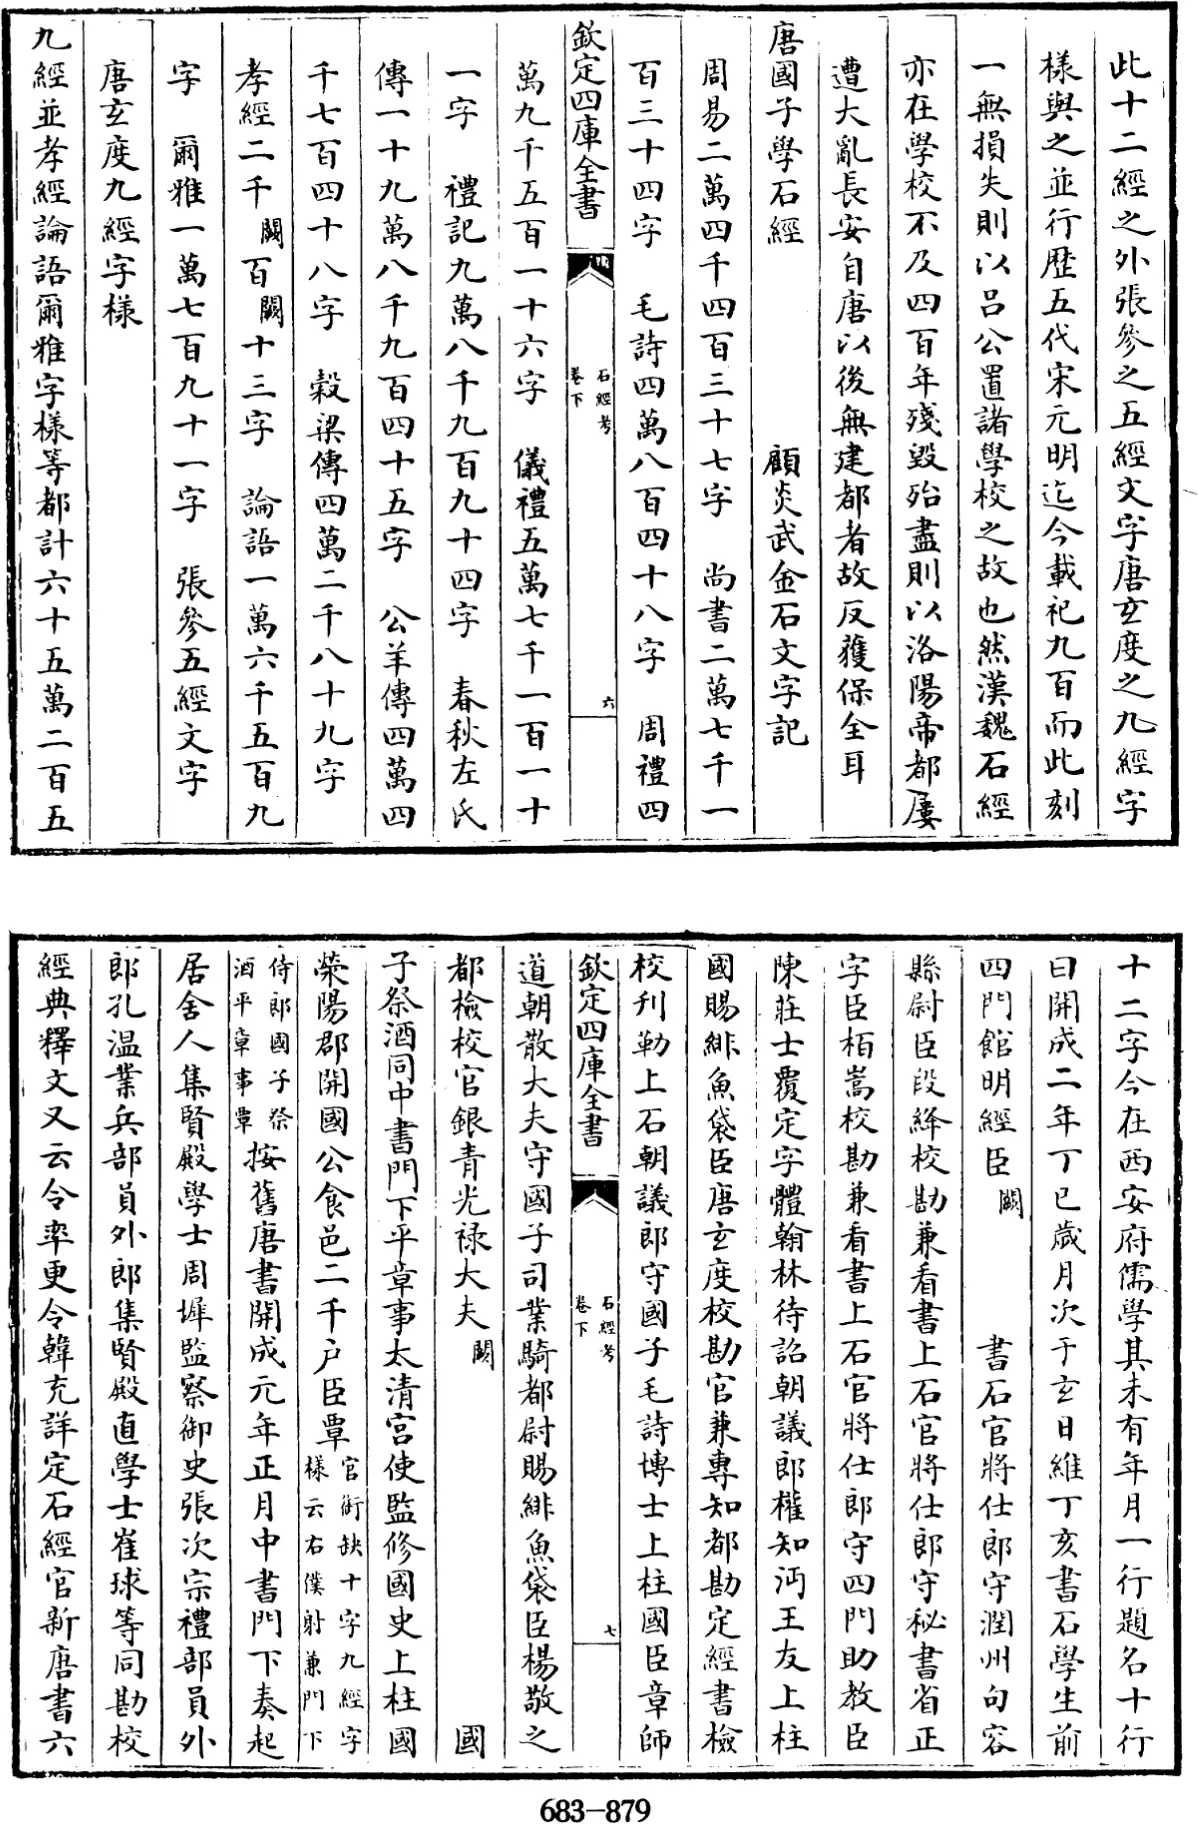 此十二經之外張參之五經文字唐玄度之九經字
樣與之並行歴五代宋元明迄今載祀九百而此刻
一無損失則以吕公置諸學校之故也然漢魏石經
亦在學校不及四百年殘毀殆盡則以洛陽帝都屢
遭大亂長安自唐以後無建都者故反獲保全耳
唐國子學石經　顧炎武金石文字記
周易二萬四千四百三十七字　尚書二萬七千一
百三十四字　毛詩四萬八百四十八字　周禮四
欽定四庫全書　石經考卷下　六
萬九千五百一十六字　儀禮五萬七千一百一十
一字　禮記九萬八千九百九十四字　春秋左氏
傳一十九萬八千九百四十五字　公羊傳四萬四
千七百四十八字　穀梁傳四萬二千八十九字
孝經二千闕百闕十三字　論語一萬六千五百九
字　爾雅一萬七百九十一字　張參五經文字
唐玄度九經字樣
九經並孝經論語爾雅字樣等都計六十五萬二百五
十二字今在西安府儒學其末有年月一行題名十行
曰開成二年丁巳歲月次于玄日維丁亥書石學生前
四門館明經臣闕　書石官將仕郎守潤州句容
縣尉臣段絳校勘兼看書上石官將仕郎守秘書省正
字臣栢嵩校勘兼看書上石官將仕郎守四門助教臣
陳莊士覆定字體翰林待詔朝議郎權知沔王友上柱
國賜緋魚袋臣唐玄度校勘官兼專知都勘定經書檢
校刋勒上石朝議郎守國子毛詩博士上柱國臣章師
欽定四庫全書　石經考卷下　七
道朝散大夫守國子司業騎都尉賜緋魚袋臣楊敬之
都檢校官銀青光禄大夫闕　國
子祭酒同中書門下平章事太清宫使監修國史上柱國
滎陽郡開國公食邑二千户臣覃官銜缺十字九經字樣云右僕射兼門下
侍郎國子祭酒平章事覃按舊唐書開成元年正月中書門下奏起
居舍人集賢殿學士周墀監察御史張次宗禮部員外
郎孔温業兵部員外郎集賢殿直學士崔球等同勘校
經典釋文又云令率更令韓充詳定石經官新唐書六
683—879